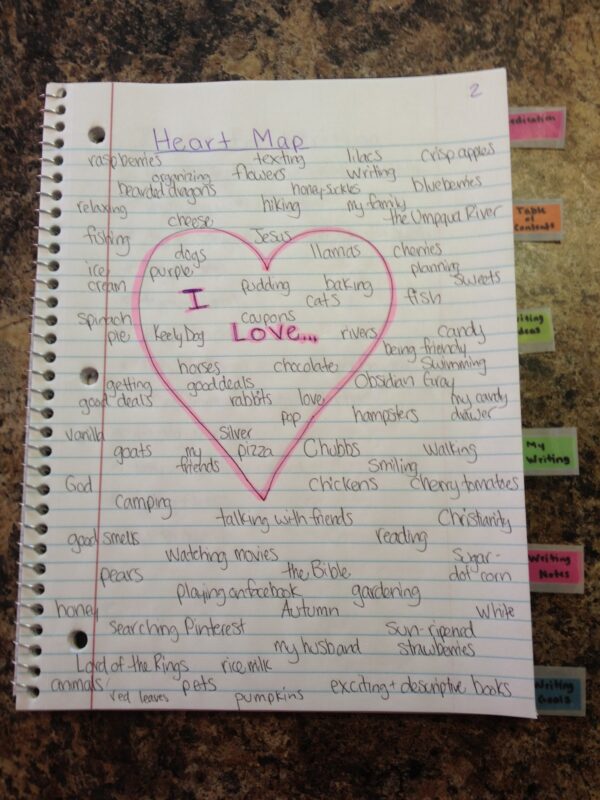 2
Heart Map
raspberries texting lilacs crisp apples
organizing flowers writing
bearded dragons honey-sickles blueberries
relaxing hiking my family
cheese the Umpqua River
fishing Jesus
dogs llamas cherries
ice cream purple planning
pudding baking sweets
I cats fish
spinach coupons
pie Keely Dog Love... rivers candy
being friendly
horses chocolate swimming
getting good deals good deals Obsidian Gray
rabbits love my candy drawer
pop hampsters
vanilla silver
goats my friends pizza Chubbs walking
smiling
God chickens cherry tomatoes
camping
talking with friends Christianity
good smells reading
watching movies sugar-dot corn
pears the Bible
playing on facebook gardening
honey Autumn white
searching Pinterest sun-ripened strawberries
my husband
Lord of the Rings rice milk
animals pets exciting + descriptive books
red leaves pumpkins
Table of Contents
My Writing
Writing Notes
Writing Goals